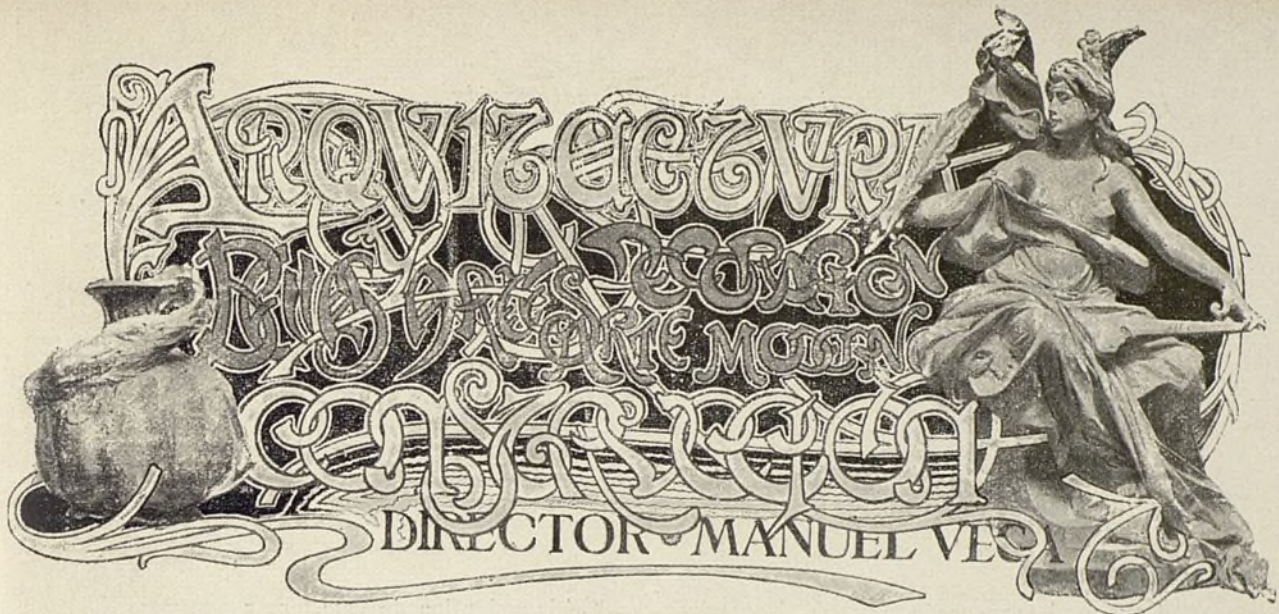 ARQUITECTURA
BELLAS ARTES DECORACION
ARTE MODERNO
CONSTRUCCIÓN
DIRECTOR MANUEL VEGA